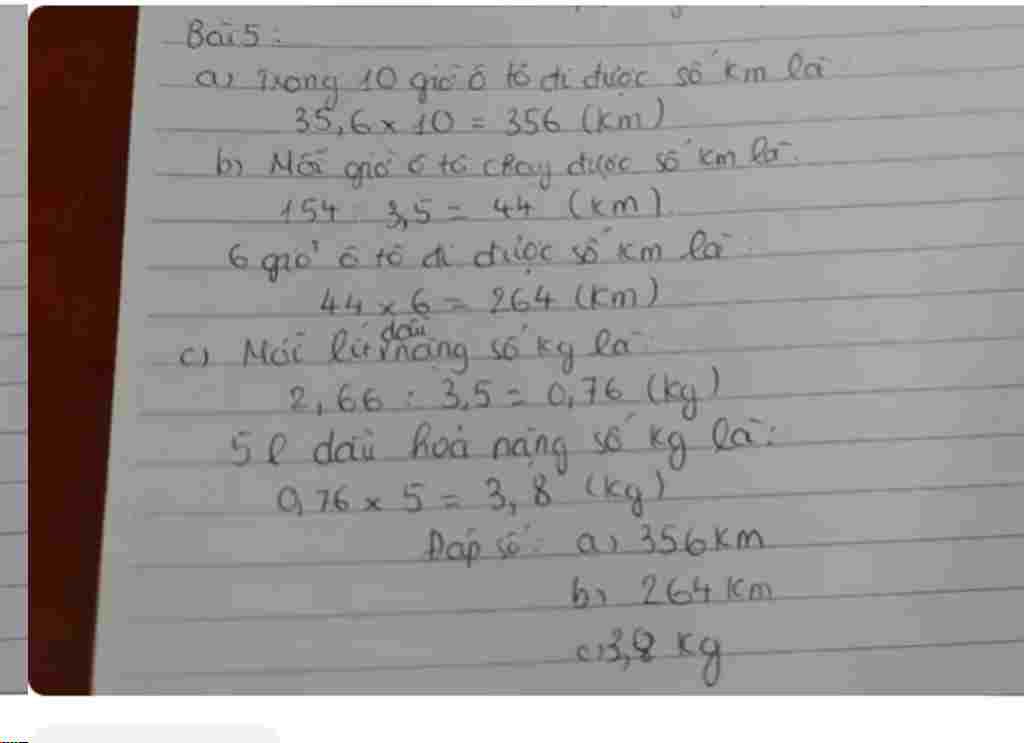 Bài 5 :
a) Trong 10 giờ ô tô đi được số km là
35,6 x 10 = 356 (km)
b) Mỗi giờ ô tô chạy được số km là :
154 : 3,5 = 44 (km)
6 giờ ô tô đi được số km là :
44 x 6 = 264 (km)
c) Mỗi lít dầu nặng số kg là :
2,66 : 3,5 = 0,76 (kg)
5 l dầu hoả nặng số kg là :
0,76 x 5 = 3,8 (kg)
Đáp số : a) 356 km
b) 264 km
c) 3,8 kg